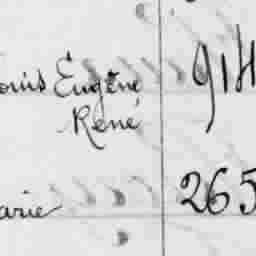 ouis Eugène 914
René
arie 265